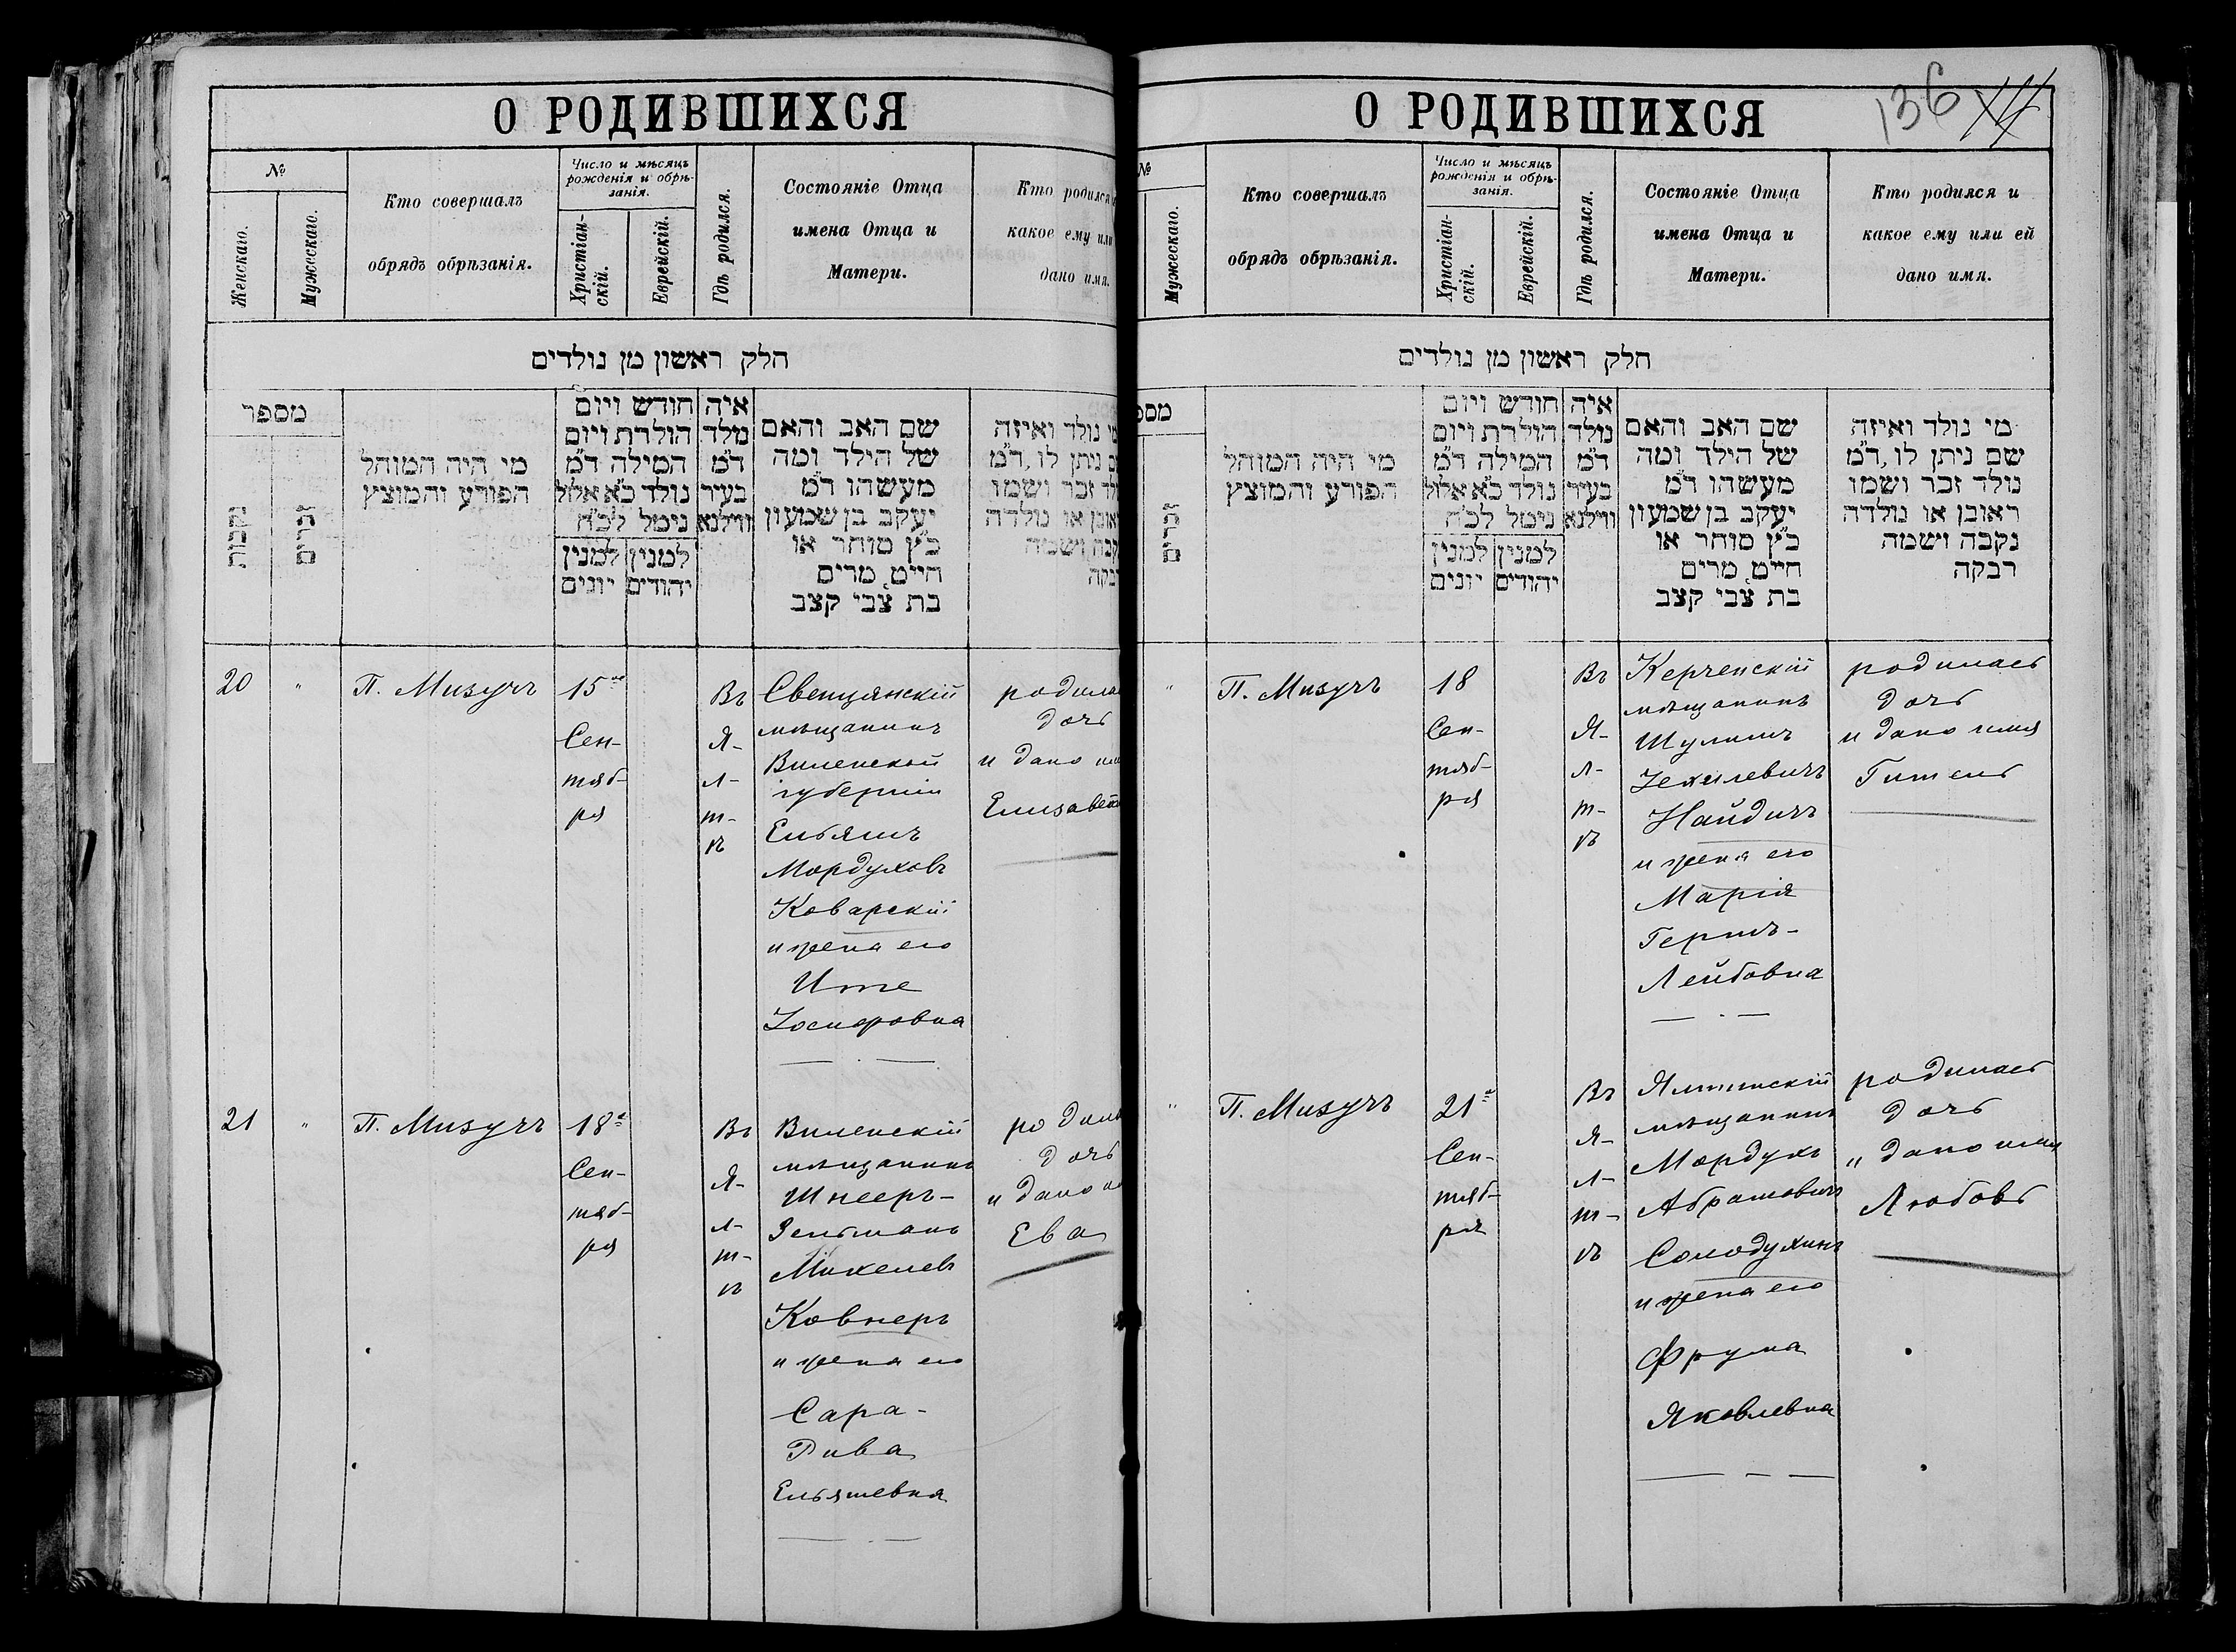 О РОДИВШИХСЯ
№
Женскаго.
Мужескаго.
Кто совершалъ
обрядъ обрѣзанія.
Число и мѣсяцъ
рожденія и обрѣ-
занія.
Христіан-
скій.
Еврейскій.
Гдѣ родился.
Состояніе Отца
имена Отца и
Матери.
Кто родился
какое ему или
дано имя.
חלק ראשון מן נולדים
מספר
נקבות
זכרים
מי היה המוהל
הפורע והמוצץ
חודש ויום
הולדת ויום
המילה ד״מ
נולד כ״א אלול
נימל לכ״ח
למנין יהודים
למנין יונים
איה
נולד
ד״מ
בעיר
ווילנא
שם האב והאם
של הילד ומה
מעשהו ד״מ
יעקב בן שמעון
כ״ץ סוחר או
חייט, מרים
בת צבי קצב
נולד ואיזה
ניתן לו, ד״מ
זכר ושמו
או נולדה
ושמה
20
"
П. Мизучъ
15го
Сен-
тяб-
ря
Въ
Я-
л-
т-
ѣ
Свенцянскій
мѣщанинъ
Виленской
губерніи
Ельяшъ
Мордуховъ
Коварскій
и жена его
Ите
Іосифовна
родила
дочь
и дано
Елизавета
21
"
П. Мизучъ
18го
Сен-
тяб-
ря
Въ
Я-
л-
т-
ѣ
Виленскій
мѣщанинъ
Шнееръ-
Зельманъ
Михелевъ
Ковнеръ
и жена его
Сара-
Рива
Ельяшевна
родила
дочь
и дано
Ева
О РОДИВШИХСЯ
136
№
Мужескаго.
Кто совершалъ
обрядъ обрѣзанія.
Число и мѣсяцъ
рожденія и обрѣ-
занія.
Христіан-
скій.
Еврейскій.
Гдѣ родился.
Состояніе Отца
имена Отца и
Матери.
Кто родился и
какое ему или ей
дано имя.
חלק ראשון מן נולדים
זכרים
מי היה המוהל
הפורע והמוצץ
חודש ויום
הולדת ויום
המילה ד״מ
נולד כ״א אלול
נימל לכ״ח
למנין יהודים
למנין יונים
איה
נולד
ד״מ
בעיר
ווילנא
שם האב והאם
של הילד ומה
מעשהו ד״מ
יעקב בן שמעון
כ״ץ סוחר או
חייט, מרים
בת צבי קצב
מי נולד ואיזה
שם ניתן לו, ד״מ
נולד זכר ושמו
ראובן או נולדה
נקבה ושמה
רבקה
"
П. Мизучъ
18
Сен-
тяб-
ря
Въ
Я-
л-
т-
ѣ
Керченскій
мѣщанинъ
Шулимъ
Іехилевичъ
Найдичъ
и жена его
Марія
Гершъ-
Лейбовна
родилась
дочь
и дано имя
Гитель
"
П. Мизучъ
21го
Сен-
тяб-
ря
Въ
Я-
л-
т-
ѣ
Ялтинскій
мѣщанинъ
Мордухъ
Абрамовичъ
Солодухинъ
и жена его
Фрума
Яковлевна
родилась
дочь
и дано имя
Любовь